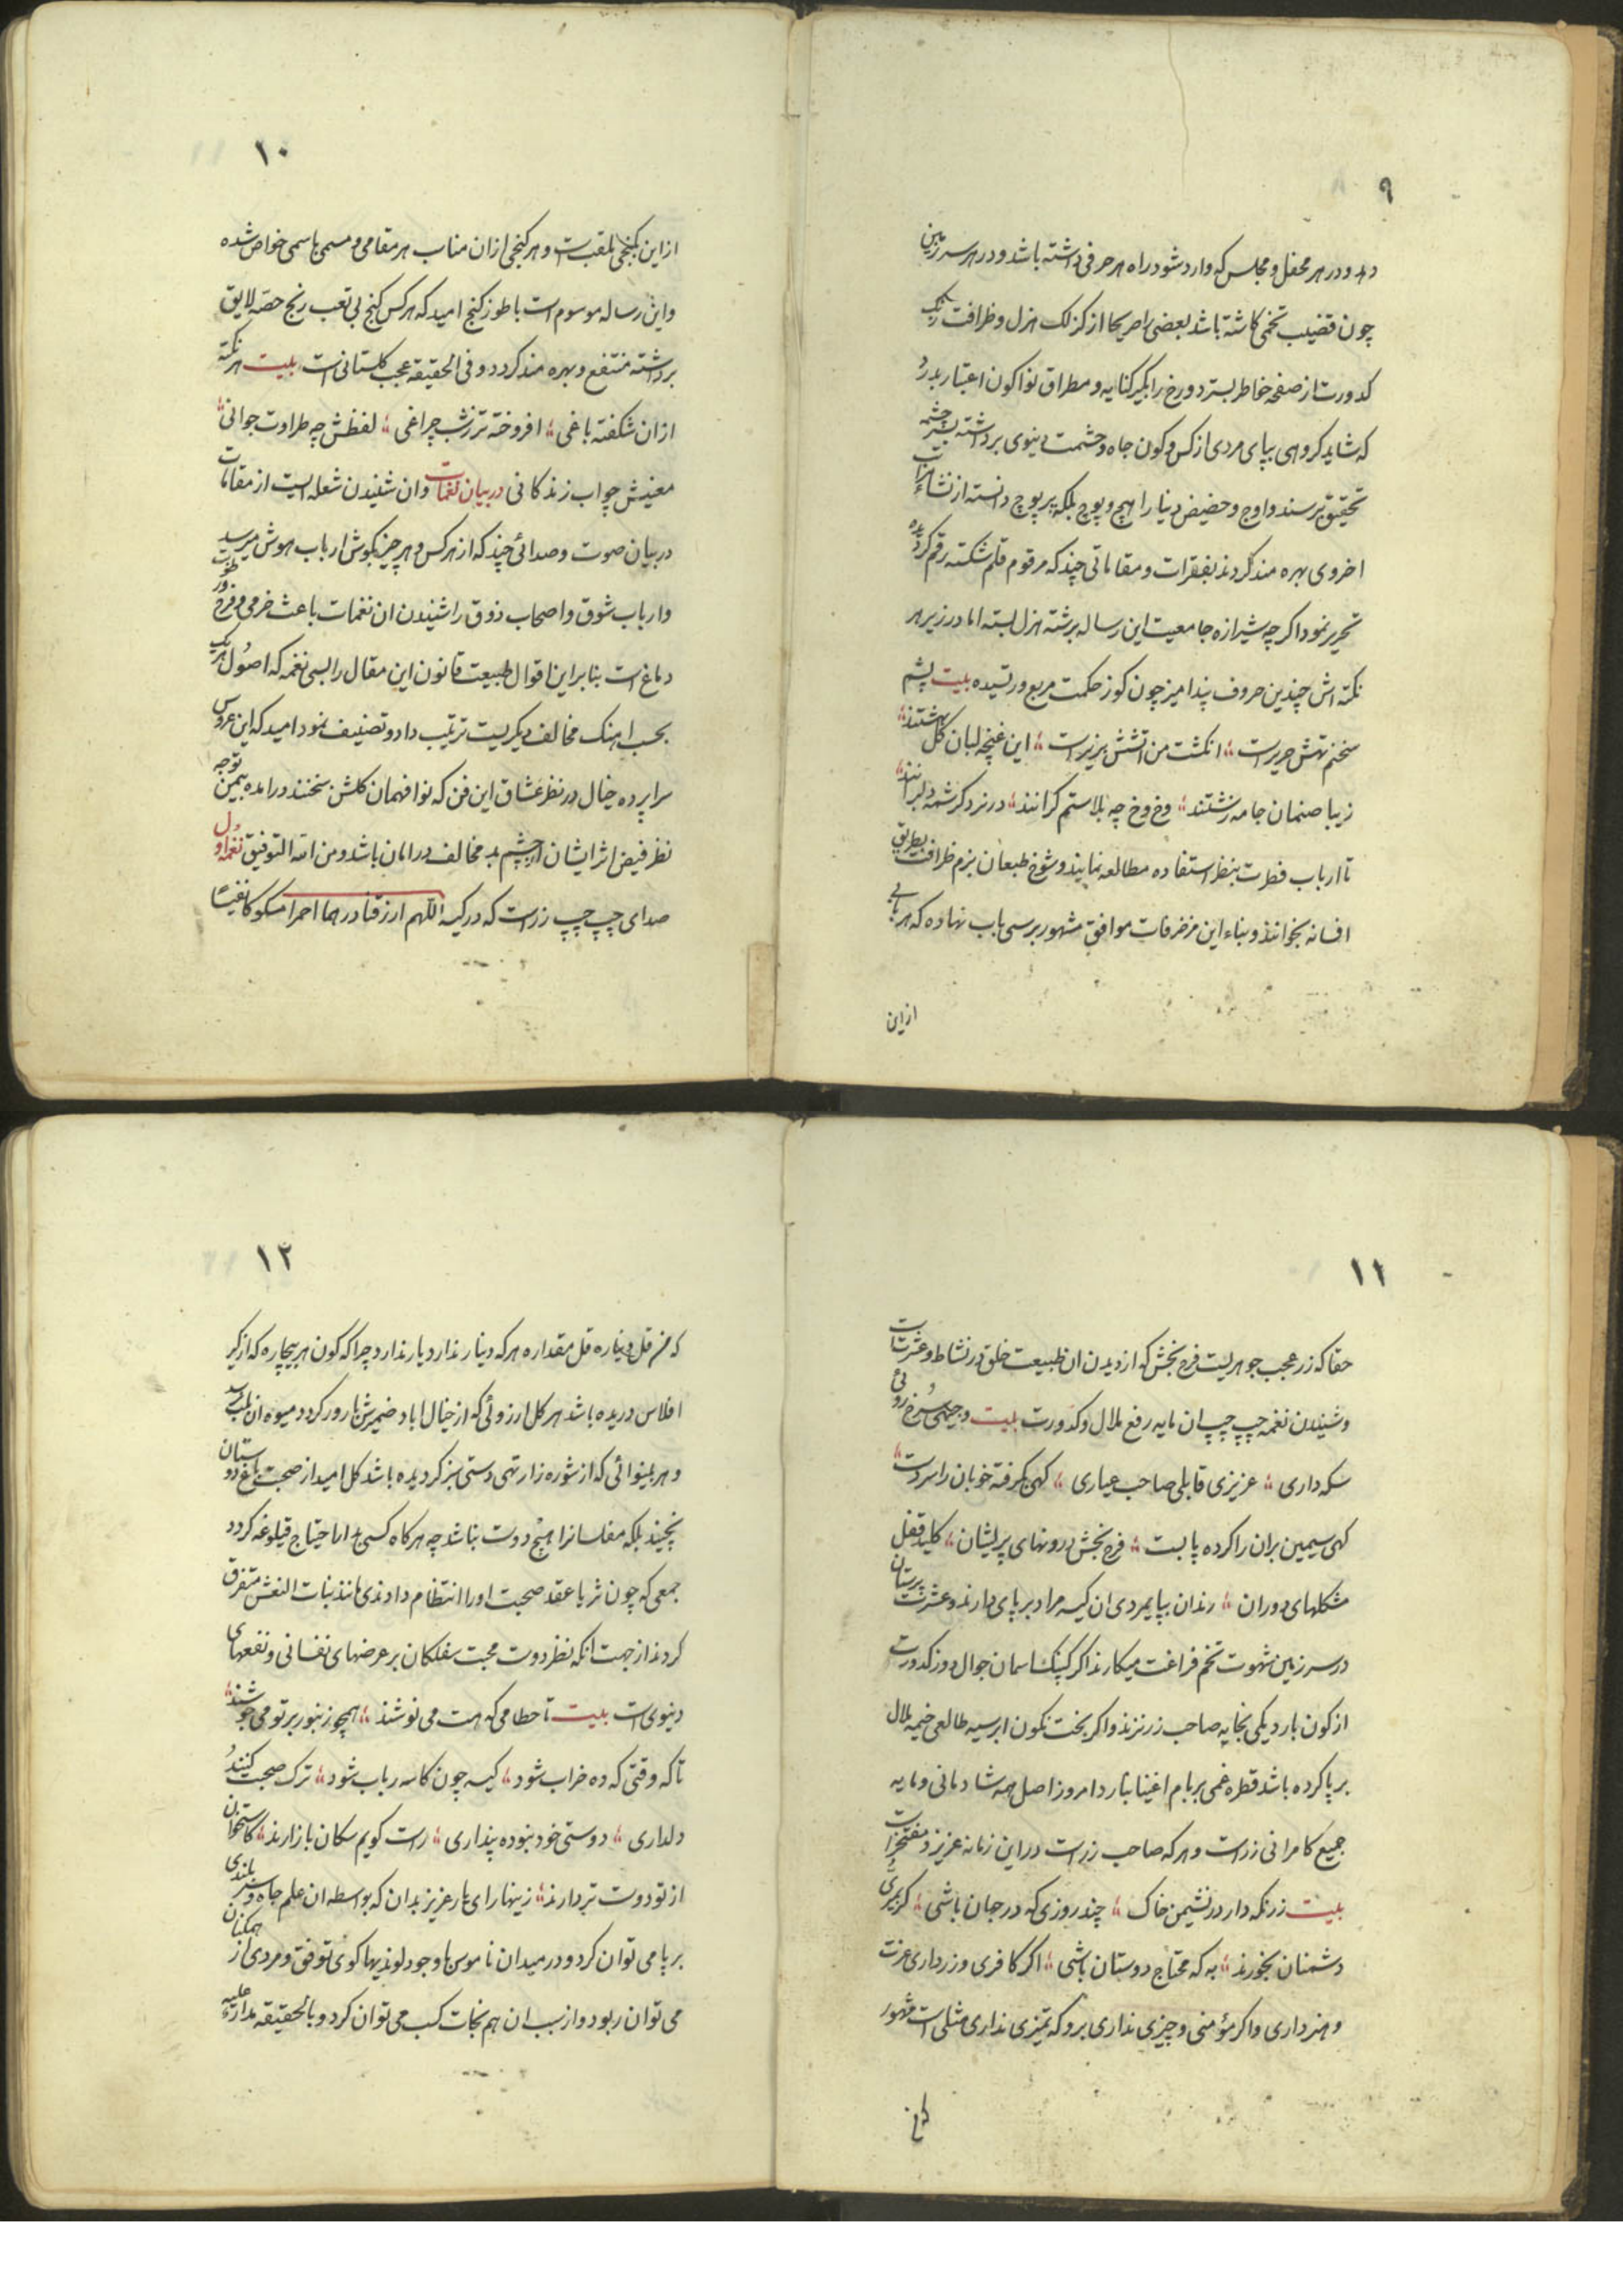 ۹
دهد و در هر محفل و مجلس که وارد شود راه هر حرفی داشته باشد و در هر سرزمین
چون قضیب تخمی کاشته باشد بعضی را صریحا از کزلک هزل و ظرافت رنگ
کدورت از صفحه خاطر بسترد و رخ را بکیر کنایه و مطراق نوا کون اعتبار بدرد
که شاید کروهی بپای مردی از کس و کون جاه و حشمت دینوی برداشته بسر چشمه
تحقیق برسند و اوج و حضیض دینا را هیچ و پوچ بلکه پر پوچ دانسته از نشاء مراتب
اخروی بهره مند کردند بفقرات و مقاماتی چند که مرقوم قلم شکسته رقم کردیده
تحریر نمود اکر چه شیرازه جامعیت این رساله برشته هزل بسته اما در زیر هر
نکته اش چندین حروف پند امیز چون کوز حکمت مربع ور تسیده بلیت پشم
سخنم تهش حریر است انکشت من اتشش پزیر است این غنچه لبان کل بهشتند
زیبا صنمان جامه رشتند وخ وخ چه بلا ستم کرانند در نرد کرشمه دلبرانند
تا ارباب فطرت بنظر استفاده مطالعه نمایند و شوخ طبعان بزم ظرافت بطریق
افسانه بخوانند و بناء این مزخرفات موافق مشهور بر سی باب نهاده که هر بابی
از این
۱۰
از این بکنجی ملقب است و هر کنجی ازان مناسب هر مقامی و مسمی باسمی خواص شده
و این رساله موسوم است باطوز کنج امید که هر کس کنج بی تعب رنج حصه لایق
برداشته منتفع و بهره مند کردد و فی الحقیقه عجب کلستانی است بلیت هر نکته
ازان شکفته باغی افروخته تر ز شب چراغی لفظش چه طراوت جوانی
معنیش چو اب زندکانی در بیان نغمات وان شنیدن شعله ایست از مقامات
در بیان صوت و صدائی چند که از هر کس و هر چیز بکوش ارباب هوش میرسد
و ارباب شوق و اصحاب ذوق را شنیدن ان نغمات باعث خرمی و فرح و رطوبت
دماغ است بنا براین اقوال طبیعت قانون این مقال را بسی نغمه که اصول هر یک
بحسب اهنک مخالف دیکریست ترتیب داد و تصنیف نمود امید که این عروس
سراپرده خیال در نظر عشاق این فن که نوا فهمان کلشن سخنند در امده بیمن توجه
نظر فیض اثر ایشان از چشم بد مخالف در امان باشد و من الله التوفیق نغمه اول
صدای چپ چپ زر است که در کیسه اللهم ارزقنا درهما احمرا مسکوکا نفیسا
۱۱
حقا که زر عجب جوهریست فرح بخش که از دیدن ان طبیعت خلق در نشاط و عشرتست
و شنیدن نغمه چپ چپ ان مایه رفع ملال و کدورت بلیت وجیهی سرخ روئی
سکه داری عزیزی قابلی صاحب عیاری کهی بکرفته خوبان را سر دست
کهی سیمین بران را کرده پا بست فرح بخش درونهای پریشان کلید قفل
مشکلهای دوران رندان بپایمردی ان کیسه مراد بر پای دارند و عشرت پرستان
در سر زمین شهوت تخم فراغت میکارند اکر کپنک اسمان جوال دوز کدورت
از کون بارد یکی بخایه صاحب زر نزند و اکر بخت نکون ابر سیه طالعی خیمه ملال
بر پا کرده باشد قطره غمی بر بام اغنیا نبارد امروز اصل همه شادمانی و مایه
جمیع کامرانی زر است و هر که صاحب زر است در این زمانه عزیز و مفتخر است
بلیت زر نکه دار در نشیمن خاک چند روزی که در جان باشی کر بمیری و
دشمنان بخورند به که محتاج دوستان باشی اکر کافری و زر داری عزت
و هنر داری و اکر مؤمنی و چیزی نداری برو که تمیزی نداری مثلی است مشهور
۱۲
که من قل دیناره قل مقداره هر که دینار ندارد یار ندارد چرا که کون هر بیچاره که از کیر
افلاس دریده باشد هر کل ارزوئی که از خیال اباد ضمیرش بارور کردد میوه ان بلب نرسد
و هر بینوائی که از شوره زار تهی دستی سبز کردیده باشد کل امید از صحبت باغ دوستان
نچیند بلکه مفلسانرا هیچ دوست نباشد چه هر کاه کسی را احتیاج قیلوغه کردد
جمعی که چون ثریا عقد صحبت او را انتظام دادندی مانند بنات النعش متفرق
کردند از جهت انکه نظر دوست محبت سفلکان بر عرضهای نفسانی و نفعهای
دینوی است بلیت تا حطامی که هست می نوشند همچو زنبور بر تو می جوشند
تا که وقتی که ده خراب شود کیسه چون کاسه رباب شود ترک صحبت کنند و
دلداری دوستی خود نبوده پنداری راست کویم سکان بازارند کاستخوان
از تو دوست تر دارند زینهار ای یار عزیز بدان که بواسطه ان علم جاه و سر بلندی
بر پا می توان کرد و در میدان ناموس با وجود لوندیها کوی توفق و مردی از همکنان
می توان ربود و از سبب ان هم نجات کسب می توان کرد و بالحقیقه مدار علیه